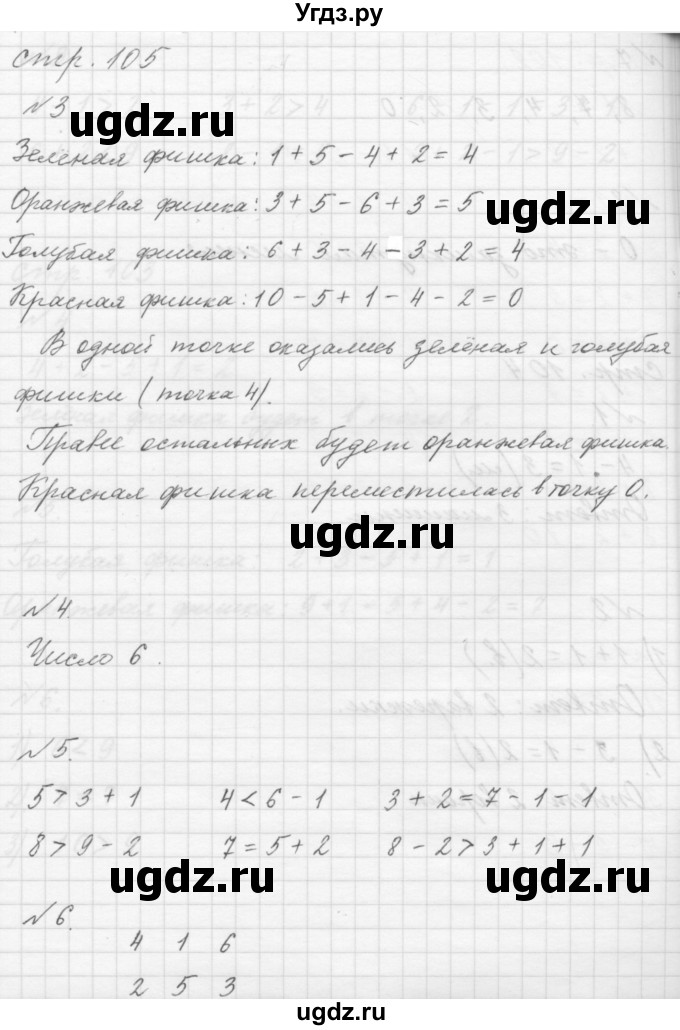 Угдз.ру
стр. 105
№3
ugdz.ru
Зелёная фишка: 1 + 5 - 4 + 2 = 4
ugdz.ru
Оранжевая фишка: 3 + 5 - 6 + 3 = 5
Голубая фишка: 6 + 3 - 4 - 3 + 2 = 4
Красная фишка: 10 - 5 + 1 - 4 - 2 = 0
В одной точке оказались зелёная и голубая
фишки (точка 4).
Правее остальных будет оранжевая фишка.
Красная фишка переместилась в точку 0.
ugdz.ru
№4.
Число 6.
№5.
5 > 3 + 1 4 < 6 - 1 3 + 2 = 7 - 1 - 1
8 > 9 - 2 7 = 5 + 2 8 - 2 > 3 + 1 + 1
ugdz.ru ugdz.ru
№6.
4 1 6
2 5 3
ugdz.ru